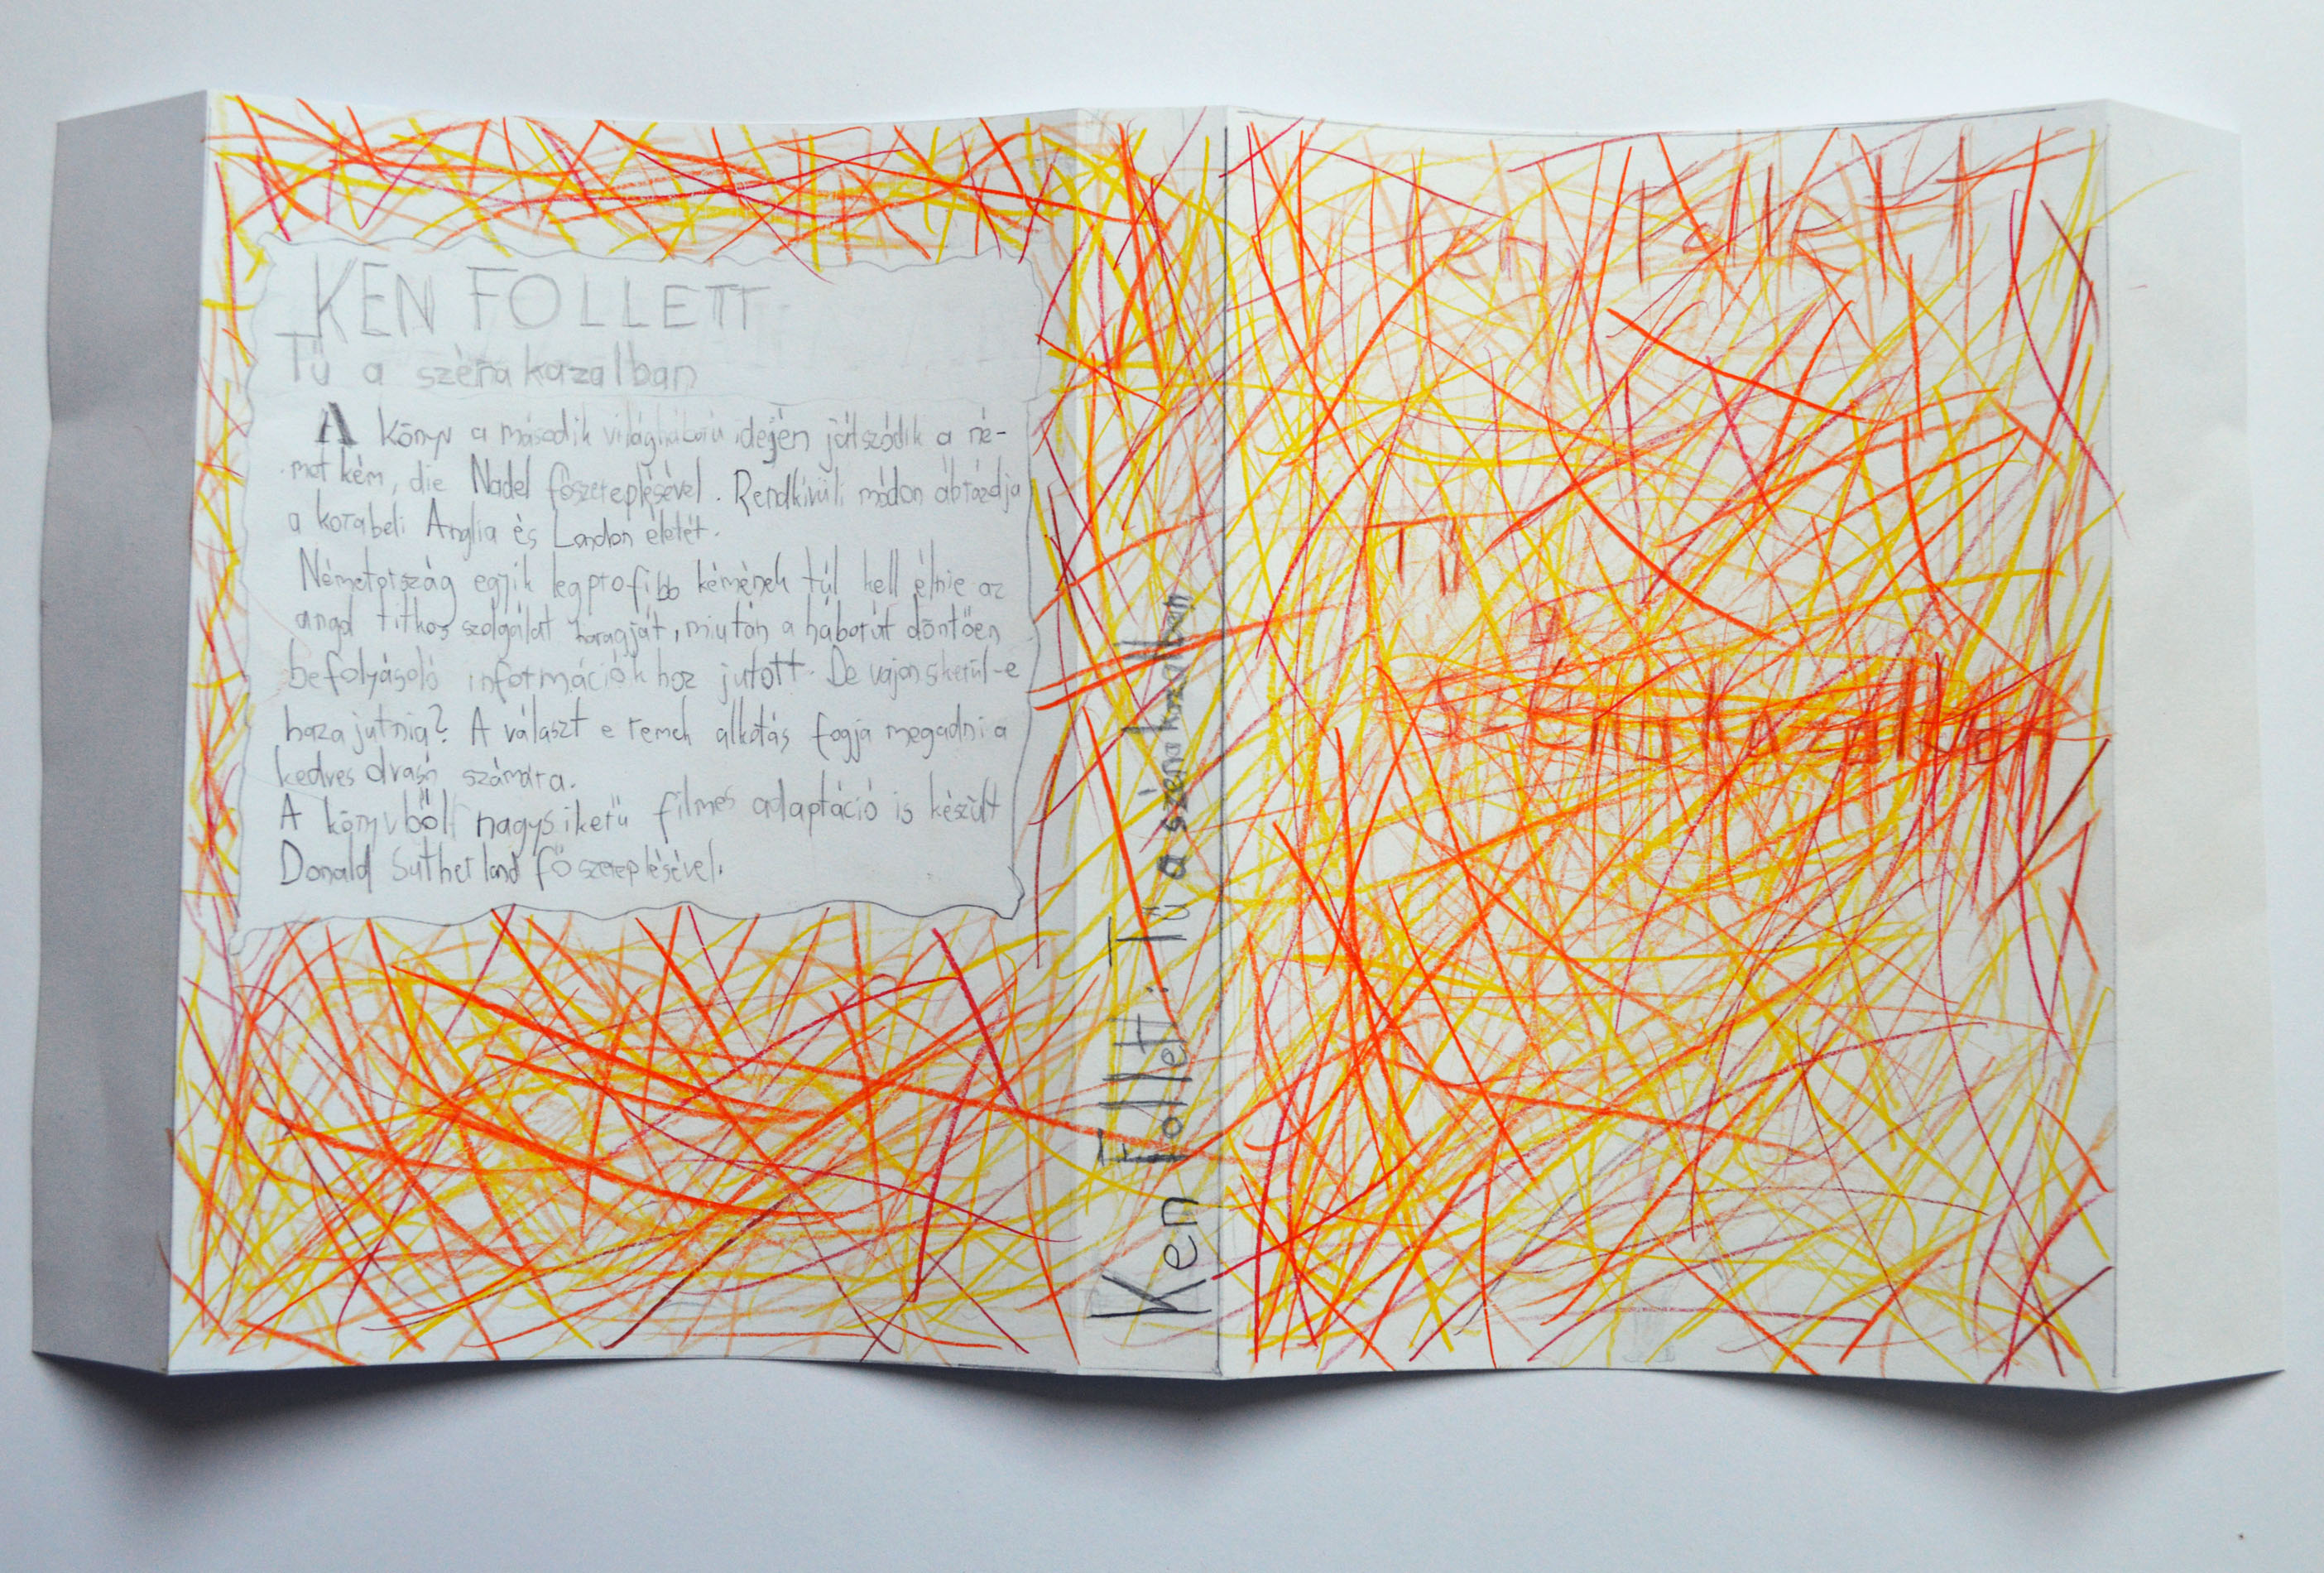 KEN FOLLETT
Tű a szénakazalban
A könyv a második világháború idején játszódik a né-
met kém, die Nadel főszereplésével. Rendkívüli módon ábrázolja
a korabeli Anglia és London életét.
Németország egyik legprofibb kémének túl kell élnie az
angol titkos szolgálat haragját, miután a háborút döntően
befolyásoló információkhoz jutott. De vajon sikerül-e
haza jutnia? A választ e remek alkotás fogja megadni a
kedves olvasó számára.
A könyvből nagysikerű filmes adaptáció is készült
Donald Sutherland főszereplésével.
Ken Follett: Tű a szénakazalban
Ken Follett
Tű
a
szénakazalban